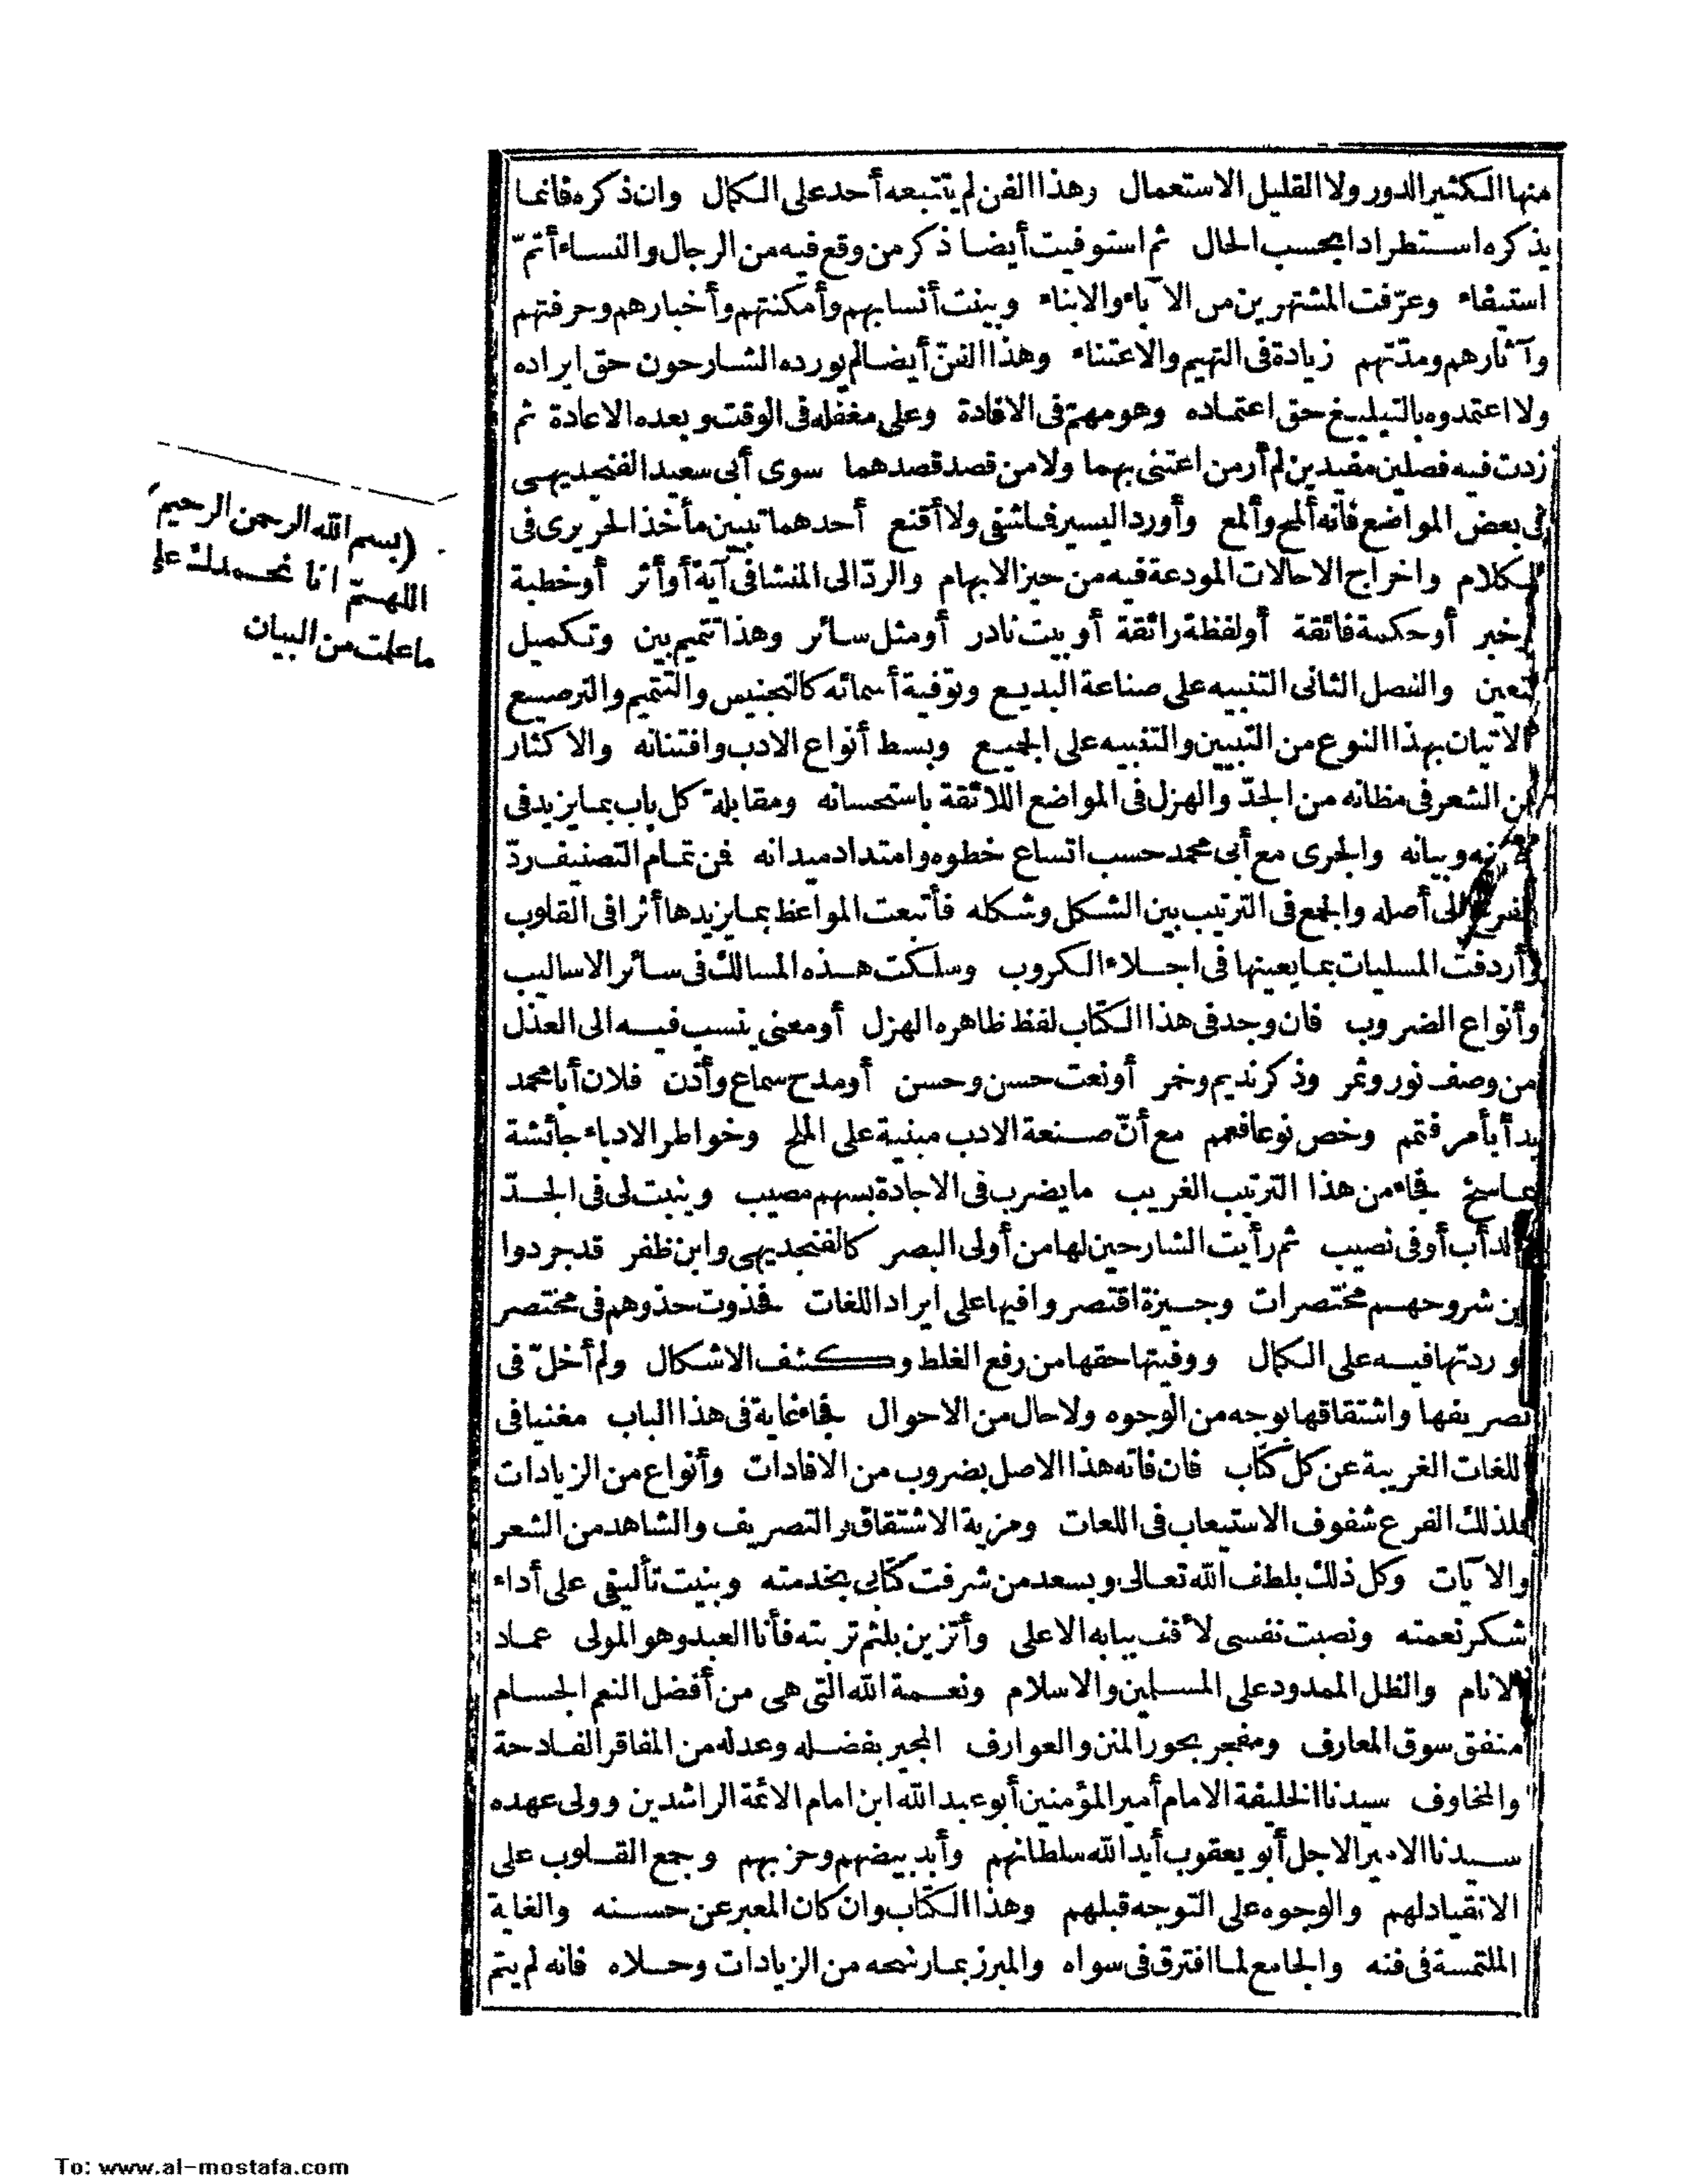 منها الكثير الدور ولا القليل الاستعمال وهذا الفن لم يتتبعه أحد على الكمال وان ذكره فانما
يذكره استطرادا بحسب الحال ثم استوفيت أيضا ذكر من وقع فيه من الرجال والنساء أتمّ
استيفاء وعرّفت المشتهرين من الآباء والابناء وبينت أنسابهم وأمكنتهم وأخبارهم وحرفتهم
وآثارهم ومدّتهم زيادة فى التهمم والاعتناء وهذا الفنّ أيضا لم يورده الشارحون حق ايراده
ولا اعتمدوه بالتبليغ حق اعتماده وهو مهمّ فى الافادة وعلى مغفله فى الوقت وبعده الاعادة ثم
زدت فيه فصلين مفيدين لم أر من اعتنى بهما ولا من قصد قصدهما سوى أبى سعيد الفنجديهى
فى بعض المواضع فانه ألمح وألمع وأورد اليسير فما شفى ولا أقنع أحدهما تبيين مأخذ الحريرى فى
الكلام واخراج الاحالات المودعة فيه من حيز الابهام والردّ الى المنشا فى آية أو أثر أو خطبة
أو خبر أو حكمة فائقة أو لفظة رائقة أو بيت نادر أو مثل سائر وهذا تتميم بين وتكميل
متعين والفصل الثانى التنبيه على صناعة البديع وتوفية أسمائه كالتجنيس والتتميم والترصيع
الاتيان بهذا النوع من التبيين والتنبيه على الجميع وبسط أنواع الادب وافتنانه والاكثار
من الشعر فى مظانه من الجدّ والهزل فى المواضع اللائقة باستحسانه ومقابلة كل باب بما يزيد فى
وبيانه والجرى مع أبى محمد حسب اتساع خطوه وامتداد ميدانه فمن تمام التصنيف ردّ
الفرع الى أصله والجمع فى الترتيب بين الشكل وشكله فأتبعت المواعظ بما يزيدها أثرا فى القلوب
وأردفت المسليات بما يعينها فى اجلاء الكروب وسلكت هذه المسالك فى سائر الاساليب
وأنواع الضروب فان وجد فى هذا الكتاب لفظ ظاهره الهزل أو معنى ينسب فيه الى العذل
من وصف نور وثمر وذكر نديم وخمر أو نعت حسن وحسن أو مدح سماع وأذن فلان أبا محمد
بدأ بأمر فتمم وخص نوعا فعمم مع أنّ صنعة الادب مبنية على الملح وخواطر الادباء جائشة
بما سنح فجاء من هذا الترتيب الغريب ما يضرب فى الاجادة بسهم مصيب ويثبت لى فى الجدّ
والدأب أوفى نصيب ثم رأيت الشارحين لها من أولى البصر كالفنجديهى وابن ظفر قد جردوا
من شروحهم مختصرات وجيزة اقتصروا فيها على ايراد اللغات فحذوت حذوهم فى مختصر
أوردتها فيه على الكمال ووفيتها حقها من رفع الغلط وكشف الاشكال ولم أخلّ فى
تصريفها واشتقاقها بوجه من الوجوه ولا حال من الاحوال فجاء غاية فى هذا الباب مغنيا فى
اللغات الغريبة عن كل كتاب فان فاته هذا الاصل بضروب من الافادات وأنواع من الزيادات
فلذلك الفرع شفوف الاستيعاب فى اللغات ومزية الاشتقاق والتصريف والشاهد من الشعر
والآيات وكل ذلك بلطف الله تعالى وبسعد من شرفت كتابى بخدمته وبنيت تأليفى على أداء
شكر نعمته ونصبت نفسى لأقف ببابه الاعلى وأتزين بلثم تربته فأنا العبد وهو المولى عماد
الانام والظل الممدود على المسلمين والاسلام ونعمة الله التى هى من أفضل النعم الجسام
منفق سوق المعارف ومفجر بحور المنن والعوارف المجير بفضله وعدله من المفاقر الفادحة
والمخاوف سيدنا الخليفة الامام أمير المؤمنين أبو عبد الله ابن امام الائمة الراشدين وولى عهده
سيدنا الامير الاجل أبو يعقوب أيد الله سلطانهم وأبد بيضهم وحزبهم وجمع القلوب على
الانقياد لهم والوجوه على التوجه قبلهم وهذا الكتاب وان كان المعبر عن حسنه والغاية
الملتمسة فى فنه والجامع لما افترق فى سواه والمبرز بما رشحه من الزيادات وحلاه فانه لم يتم
(بسم الله الرحمن الرحيم)
اللهمّ انا نحمدك على
ما علمت من البيان
To: www.al-mostafa.com